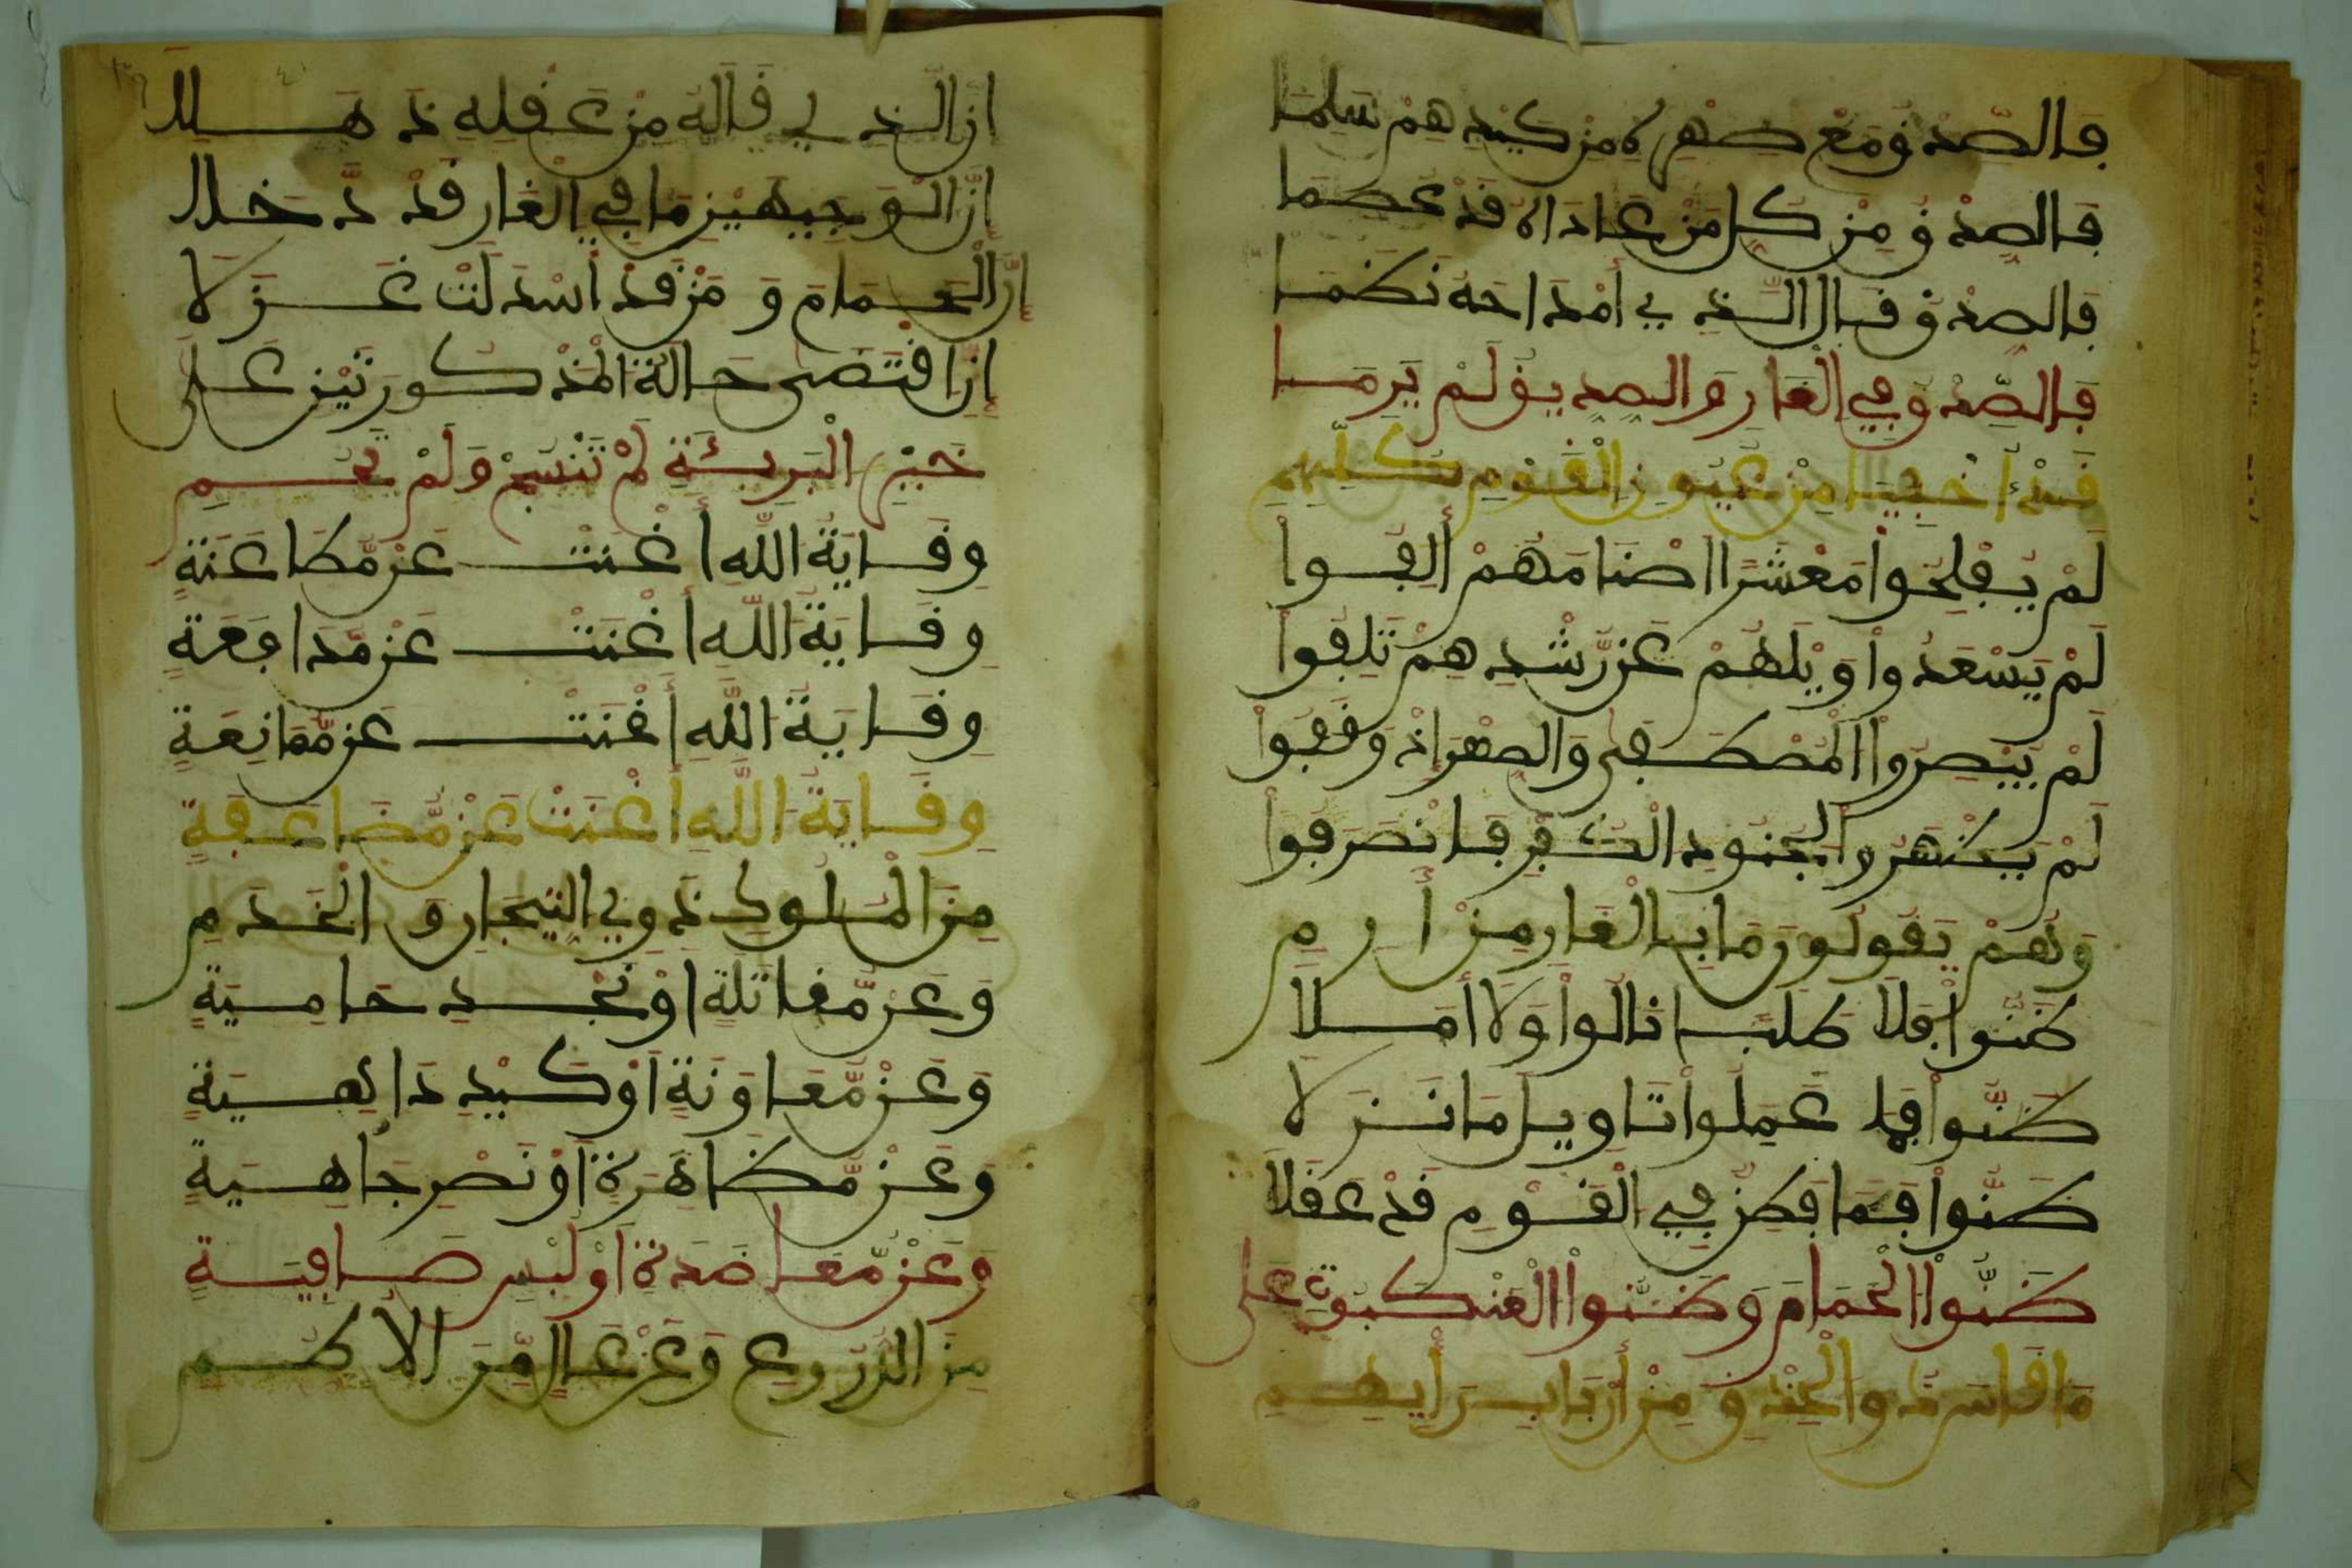 فَالصِّدْقُ مَعْ صِهْرِهِ مِنْ كَيْدِهِمْ سَلِمَا
فَالصِّدْقُ مِنْ كُلِّ مَنْ عَادَاهُ قَدْ عُصِمَا
فَالصِّدْقُ قَالَ الَّذِي أَمْدَاحَهُ نَظَمَا
فَالصِّدْقُ فِي الْغَارِ وَالصِّدِّيقُ لَمْ يَرِمَا
قَدْ أُخْفِيَا مِنْ عُيُونِ الْقَوْمِ بِكُلِّهِمِ
لَمْ يُفْلِحُواْ مَعْشَرًا اَصْنَامَهُمْ أَلِفُواْ
لَمْ يَسْعَدُواْ وَيْلَهُمْ عَن رُّشْدِهِمْ تَلِفُواْ
لَمْ يُبْصِرُواْ الْمُصْطَفَى وَالصِّهْرَ إِذْ وَقَفُواْ
لَمْ يَظْهَرُواْ لِجُنُودِ الْكُفْرِ فَانْصَرَفُواْ
وَهُمْ يَقُولُونَ مَا بِالْغَارِ مِنْ أَرِمِ
ظَنُّواْ فَلَا طَلَبًا نَالُواْ وَلَا أَمَلَا
ظَنُّواْ فَمَا عَمِلُواْ تَاوِيلَ مَا نَزَلَا
ظَنُّواْ فَمَا فَطِنٌ فِي الْقَوْمِ قَدْ عَقَلَا
ظَنُّواْ الْحَمَامَ وَظَنُّواْ الْعَنْكَبُوتَ عَلَى
مَا قَاسَ ذُو الْحِذْقِ مِنْ أَرْبَابِ رَأْيِهِمِ
إِنَّ الَّذِي قَالَهُ مِنْ عَقْلِهِ ذَهَلَا
إِنَّ الْوَجِيهَيْنِ مَا فِي الْغَارِ قَدْ دَّخَلَا
إِنَّ الْحَمَامَ وَمَنْ قَدْ أَسْدَلَتْ غَزَلَا
إِنِ اقْتَضَى حَالَةُ الْمَذْكُورَتَيْنِ عَلَى
خَيْرِ الْبَرِيئَةِ لَمْ تَنْسِجْ وَلَمْ تَحُمِ
وِقَايَةُ اللَّهِ أَغْنَتْ عَن مُّطَاعَنَةٍ
وِقَايَةُ اللَّهِ أَغْنَتْ عَن مُّدَافَعَةٍ
وِقَايَةُ اللَّهِ أَغْنَتْ عَن مُّمَانِعَةٍ
وِقَايَةُ اللَّهِ أَغْنَتْ عَن مُّضَاعَفَةٍ
مِنَ الْمُلُوكِ ذَوِي التِّيجَارِ وَالْخَدَمِ
وَعَن مُّقَاتَلَةٍ اَوْ نَجْدٍ حَامِيَةٍ
وَعَنْ مُّعَاوَنَةٍ اَوْ كَيْدِ دَاهِيَةٍ
وَعَنْ مُّظَاهَرَةٍ اَوْ نَصْرِ جَاهِيَةٍ
وَعَنْ مُّعَاضَدَةٍ اَوْ لُبْسِ صَافِيَةٍ
مِنَ الدُّرُوعِ وَعَنْ عَالٍ مِّنَ الْأُطُمِ